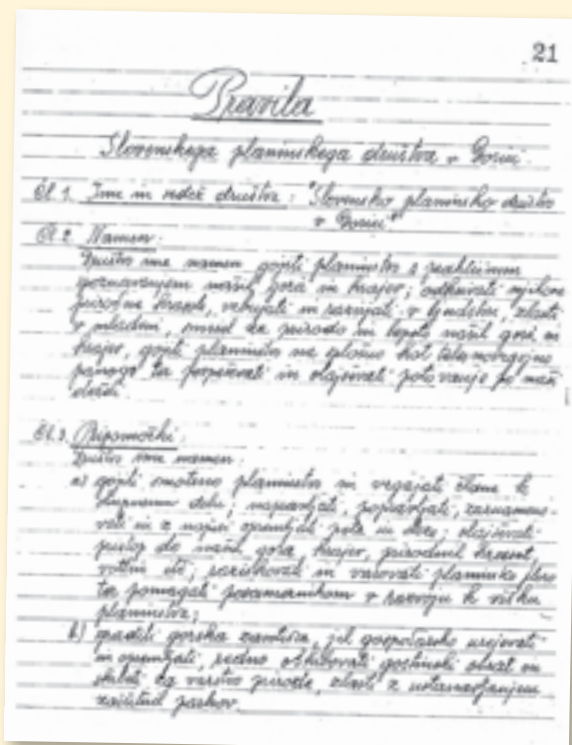 21
Pravila
Slovenskega planinskega društva v Gorici.
Čl. 1. Ime in sedež društva: "Slovensko planinsko društvo
v Gorici"
Čl. 2. Namen:
Društvo ima namen gojiti planinstvo s praktičnim
spoznavanjem naših gora in krajev; odkrivati njihove
prirodne krasote, vzbujati in razvijati, v ljudstvu, zlasti
v mladini, smisel za prirodo in lepoto naših gora in
krajev, gojiti planinstvo na splošno kot telesnovzgojno
panogo ter pospeševati in olajševati potovanje po naši
deželi.
Čl. 3. Pripomočki:
Društvo ima namen:
a) gojiti smotrno planinstvo in vzgajati člane k
skupnemu delu; napravljati, popravljati, zaznamo-
vati in z napisi opremljati pota in steze; olajševati
pristop do naših gora, krajev, prirodnih krasot,
votlin itd; raziskovati in varovati planinsko floro
ter pomagati posameznikom v razvoju k višku
planinstva;
b) graditi gorska zavetišča, jih gospodarsko urejevati
in opremljati, redno oskrbovati gostinski obrat in
skrbeti za varstvo prirode, zlasti z ustanavljanjem
zaščitnih parkov.